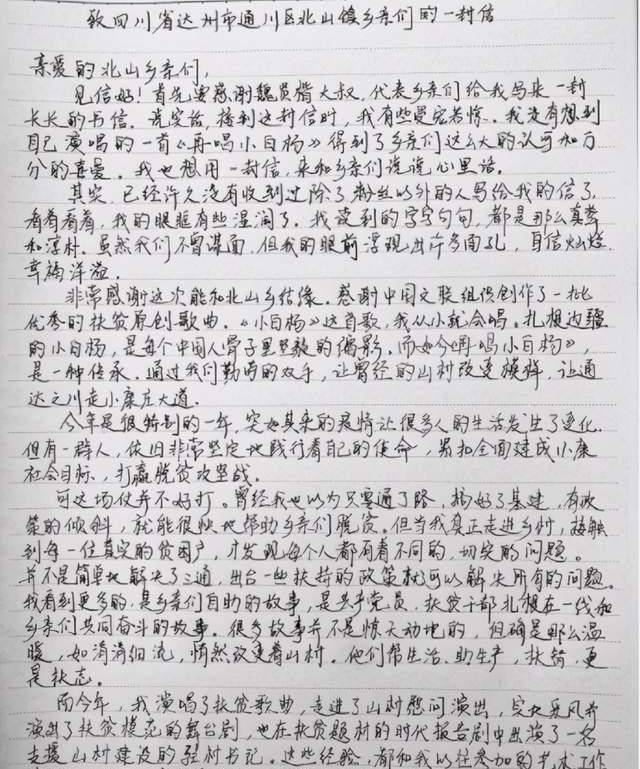 致四川省达州市通川区北山镇乡亲们的一封信
亲爱的北山乡亲们，
见信好！首先要感谢魏贤楷大叔，代表乡亲们给我写来一封
长长的书信。说实话，接到这封信时，我有些受宠若惊。我没有想到
自己演唱的一首《再唱小白杨》得到了乡亲们这么大的认可和万
分的喜爱。我也想用一封信，来和乡亲们说说心里话。
其实，已经许久没有收到过除了粉丝以外的人写给我的信了，
看着看着，我的眼眶有些湿润了。我读到的字字句句，都是那么真挚
和淳朴。虽然我们不曾谋面，但我的眼前浮现出许多面孔，自信灿烂，
幸福洋溢。
非常感谢这次能和北山乡结缘。感谢中国文联组织创作了一批
优秀的扶贫原创歌曲。《小白杨》这首歌，我从小就会唱。扎根边疆
的小白杨，是每个中国人骨子里坚毅的缩影。而如今《再唱小白杨》，
是一种传承。通过我们勤劳的双手，让曾经的山村改变模样，让通
达之川走小康庄大道。
今年是很特别的一年，突如其来的疫情让很多人的生活发生了变化。
但有一群人，依旧非常坚定地践行着自己的使命，紧扣全面建成小康
社会目标，打赢脱贫攻坚战。
可这场仗并不好打。曾经我也以为只要通了路，搞好了基建，有政
策的倾斜，就能很快地帮助乡亲们脱贫。但当我真正走进乡村，接触
到每一位真实的贫困户，才发现每个人都有着不同的，切实的问题。
并不是简单地解决了三通，出台一些扶持的政策就可以解决所有的问题。
我看到更多的，是乡亲们自助的故事，是共产党员，扶贫干部扎根在一线和
乡亲们共同奋斗的故事。很多故事并不是惊天动地的，但确是那么温
暖，如涓涓细流，悄然改变着山村。他们帮生活，助生产，扶智，更
是扶志。
而今年，我演唱了扶贫歌曲，走进了山村慰问演出，实火采风并
演出了扶贫模范的舞台剧，也在扶贫题材的时代报告剧中出演了一名
支援山村建设的驻村书记。这些经验，都和我以往参加的艺术工作